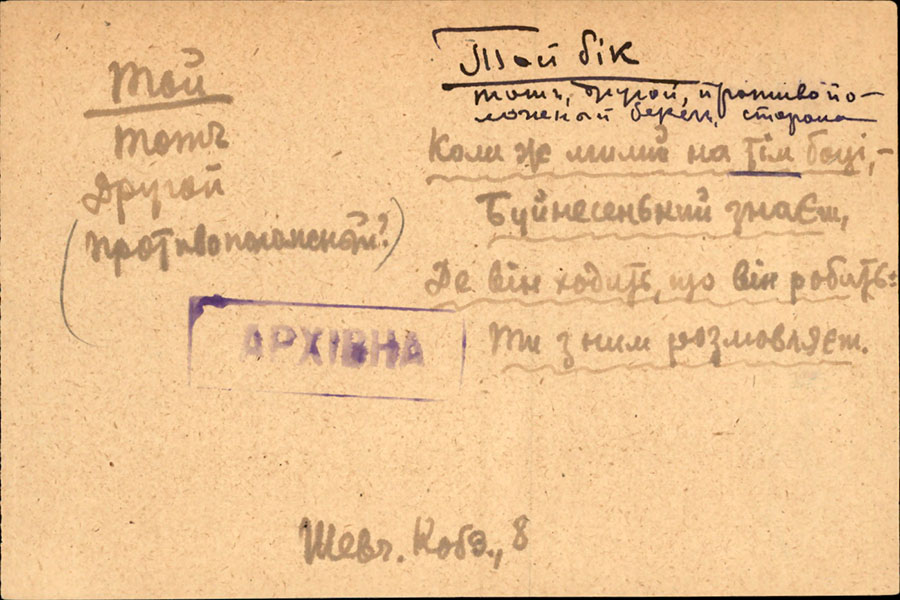 Той
тотъ
Другой
(противоположный?)
Той бік
тотъ, другой, противопо-
ложный берег, сторона
Коли ж милий на тім боці,-
Буйнесенький знаєш,
Де він ходить, що він робить:
Ти з ним розмовляєш.
АРХІВНА
Шевч. Кобз., 8